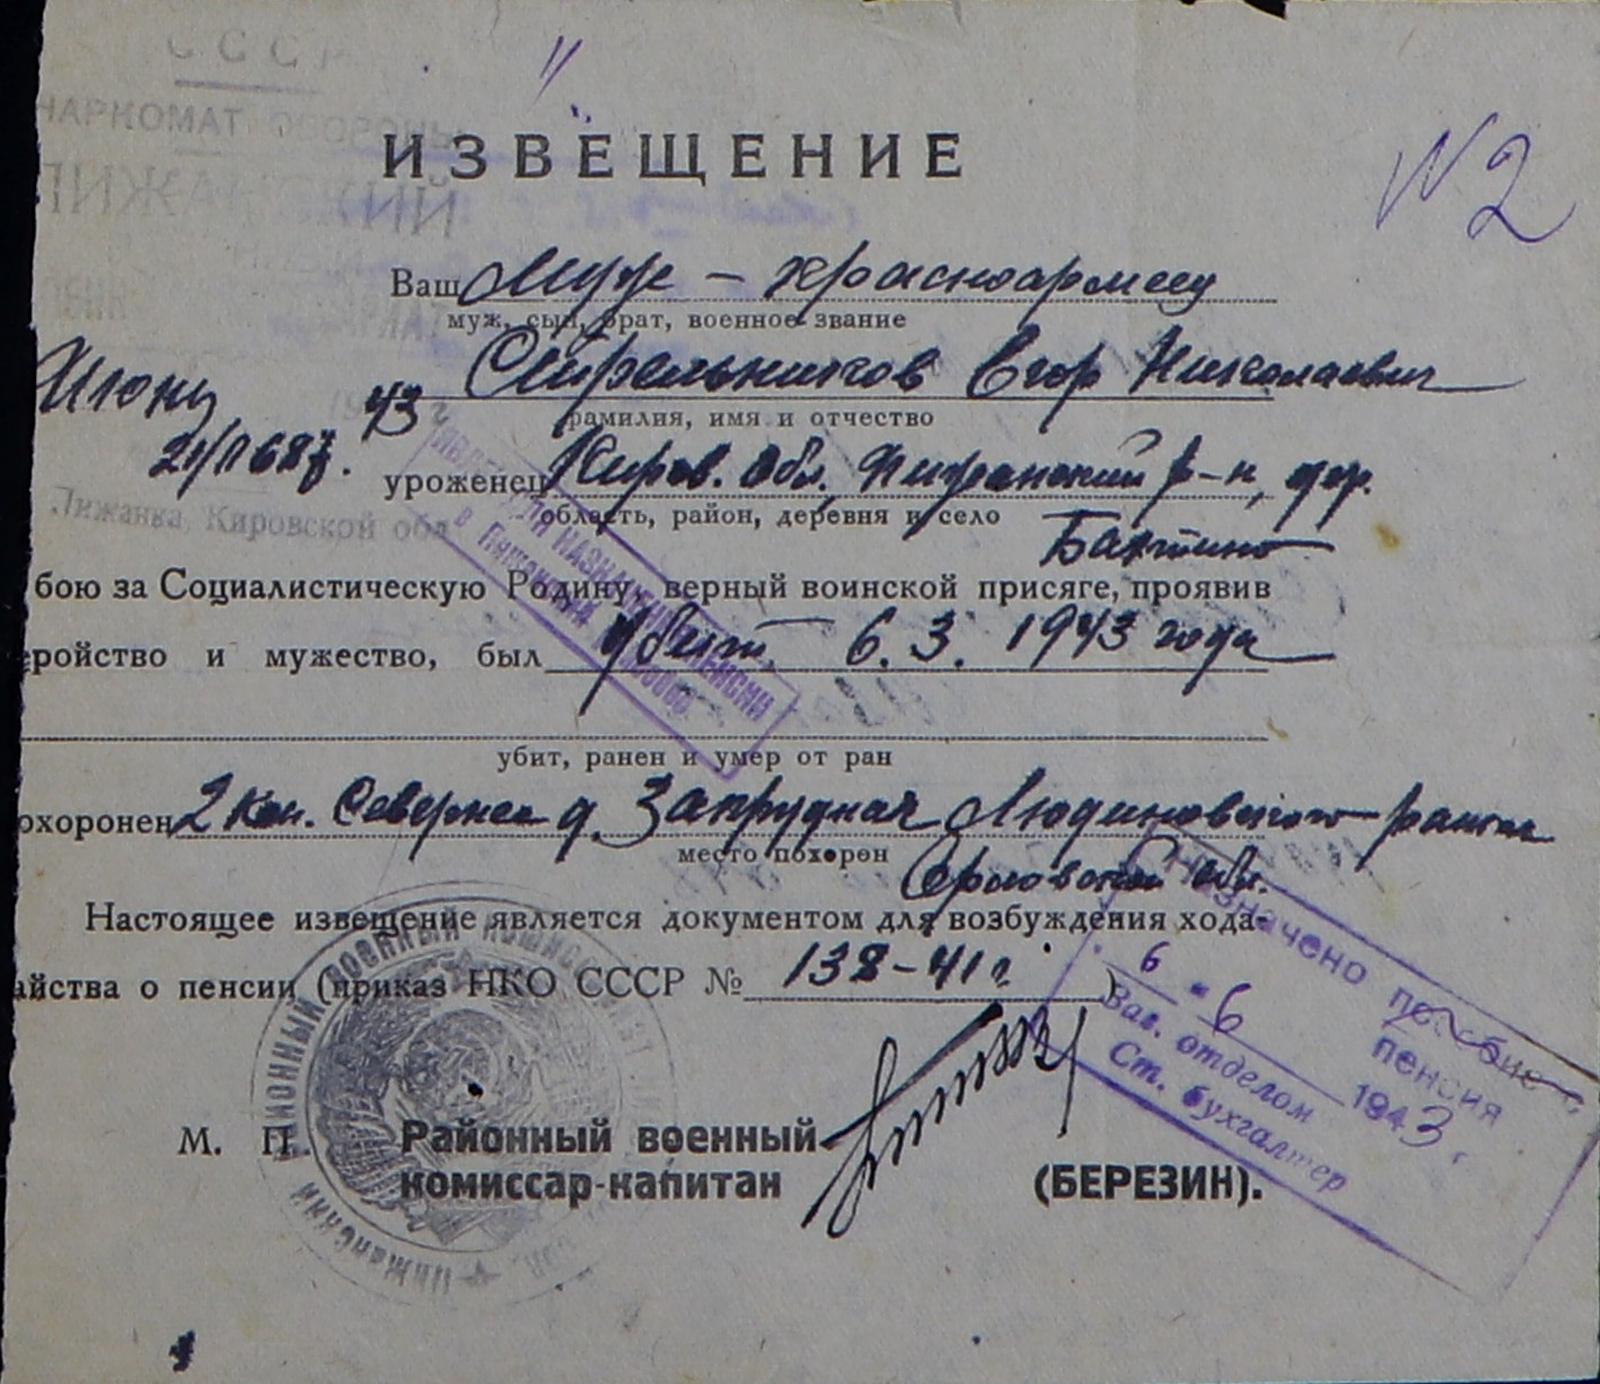 СССР
НАРКОМАТ ОБОРОНЫ
ПИЖАНСКИЙ
ИЗВЕЩЕНИЕ
№ 2
Ваш муж – красноармеец
муж, сын, брат, военное звание
Стрельников Егор Николаевич
фамилия, имя и отчество
Июня 43
21/1687.
уроженец Киров. обл., Пижанский р-н, дер.
область, район, деревня и село
Бахтино
Пижанка, Кировской обл
бою за Социалистическую Родину, верный воинской присяге, проявив
еройство и мужество, был убит 6.3.1943 года
убит, ранен и умер от ран
охоронен 2 км. Севернее д. Запрудная Людиновского района
место похорон
Орловской обл.
Настоящее извещение является документом для возбуждения хода-
айства о пенсии (приказ НКО СССР № 138-41г.)
НАЗНАЧЕНИЯ ПЕНСИИ
Назначено пособие
пенсия
6 - 6 1943 г.
Зав. отделом
Ст. бухгалтер
М. П. Районный военный
комиссар-капитан (БЕРЕЗИН).
РАЙОННЫЙ ВОЕННЫЙ КОМИССАРИАТ
ПИЖАНСКИЙ